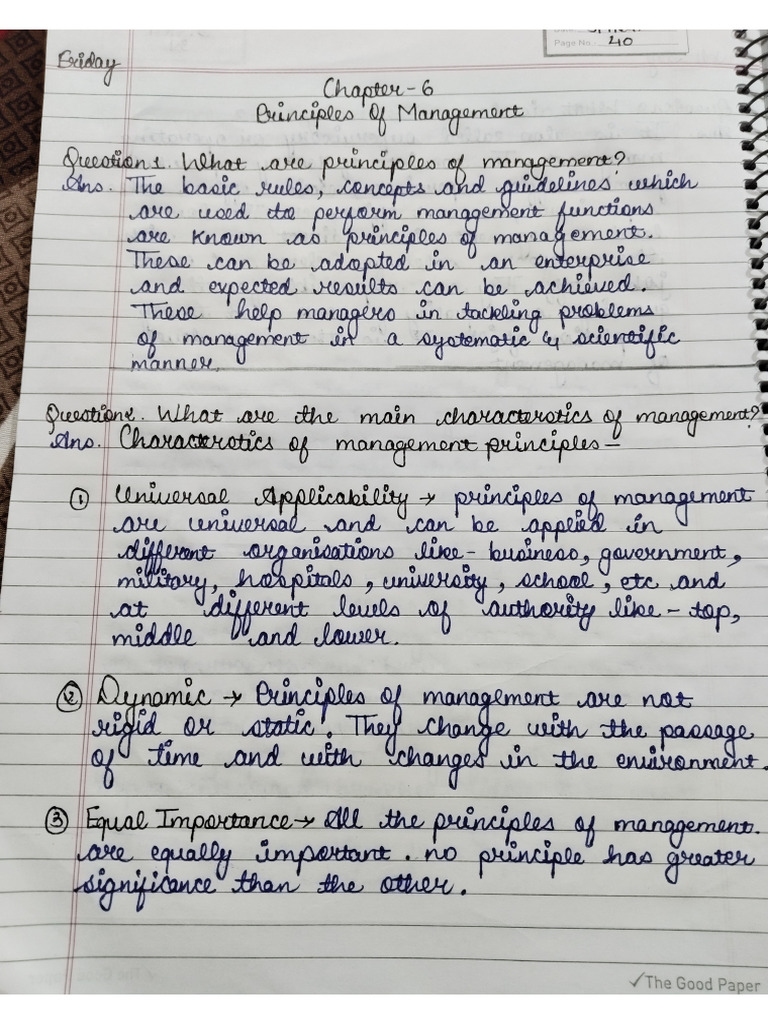 Page No. 40
Friday
Chapter-6
Principles Of Management
Question1. What are principles of management?
Ans. The basic rules, concepts and guidelines which
are used to perform management functions
are known as principles of management.
These can be adopted in an enterprise
and expected results can be achieved.
These help managers in tackling problems
of management in a systematic & scientific
manner.
Question2. What are the main characterotics of management?
Ans. Characterotics of management principles –
① Universal Applicability → principles of management
are universal and can be applied in
different organisations like - business, government,
military, hospitals, university, school, etc and
at different levels of authority like – top,
middle and lower.
② Dynamic → Principles of management are not
rigid or static. They change with the passage
of time and with changes in the environment.
③ Equal Importance → All the principles of management.
are equally important. no principle has greater
significance than the other.
✓The Good Paper